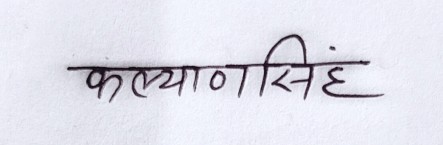 कल्याणसिंह